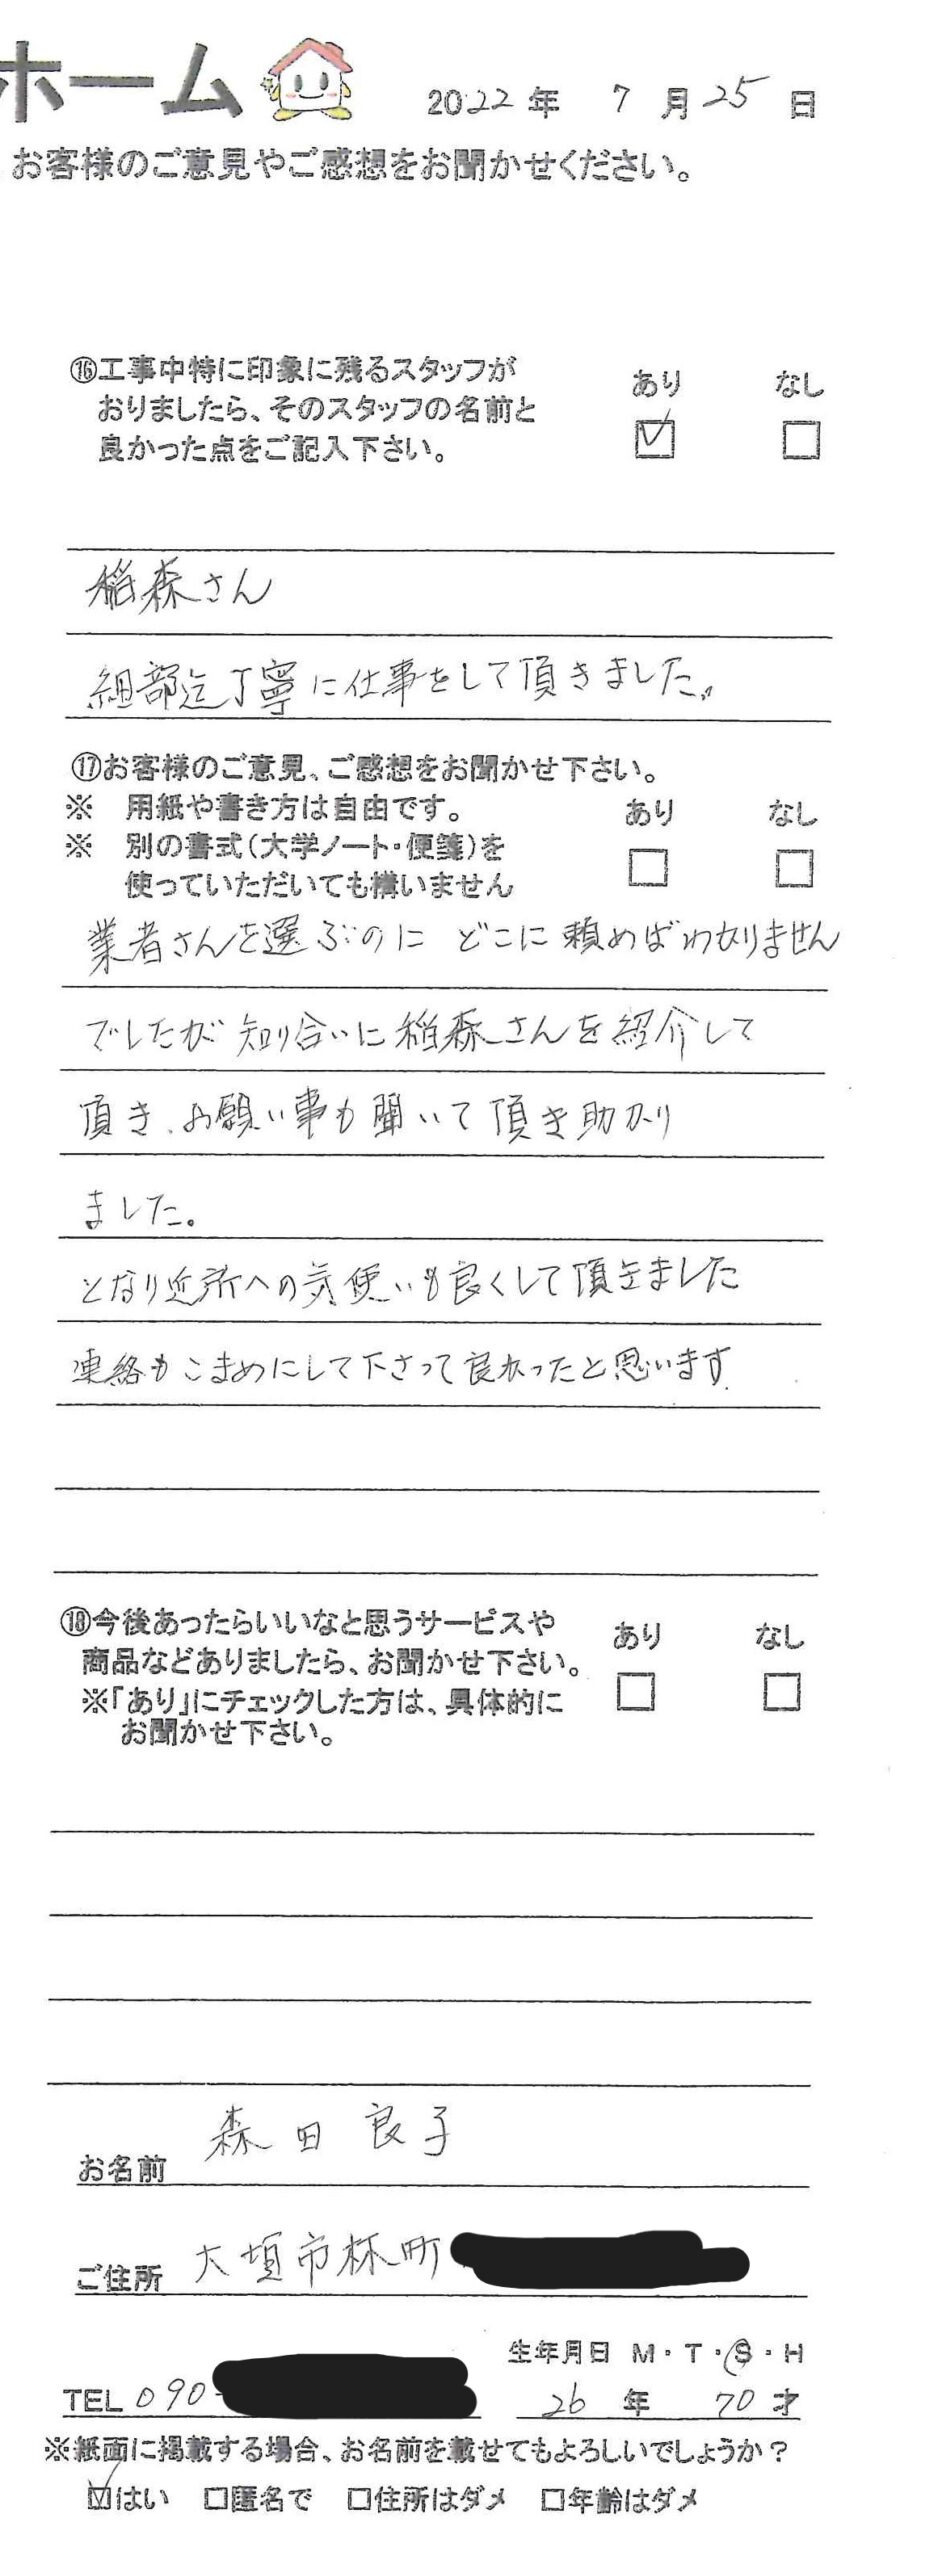 ホーム
2022年 7月25日
お客様のご意見やご感想をお聞かせください。
⑯工事中特に印象に残るスタッフが
おりましたら、そのスタッフの名前と
良かった点をご記入下さい。
あり なし
稲森さん
細部迄丁寧に仕事をして頂きました。
⑰お客様のご意見、ご感想をお聞かせ下さい。
※ 用紙や書き方は自由です。
※ 別の書式(大学ノート・便箋)を
使っていただいても構いません
あり なし
業者さんを選ぶのに どこに頼めばわかりません
でしたが 知り合いに稲森さんを紹介して
頂き、お願い事も聞いて頂き助かり
ました。
となり近所への気使いも良くして頂きました
連絡もこまめにして下さって良かったと思います
⑱今後あったらいいなと思うサービスや
商品などありましたら、お聞かせ下さい。
※「あり」にチェックした方は、具体的に
お聞かせ下さい。
あり なし
お名前 森田 良子
ご住所 大垣市林町
生年月日 M・T・S・H
TEL 090-
26年 70才
※紙面に掲載する場合、お名前を載せてもよろしいでしょうか？
☑はい □匿名で □住所はダメ □年齢はダメ